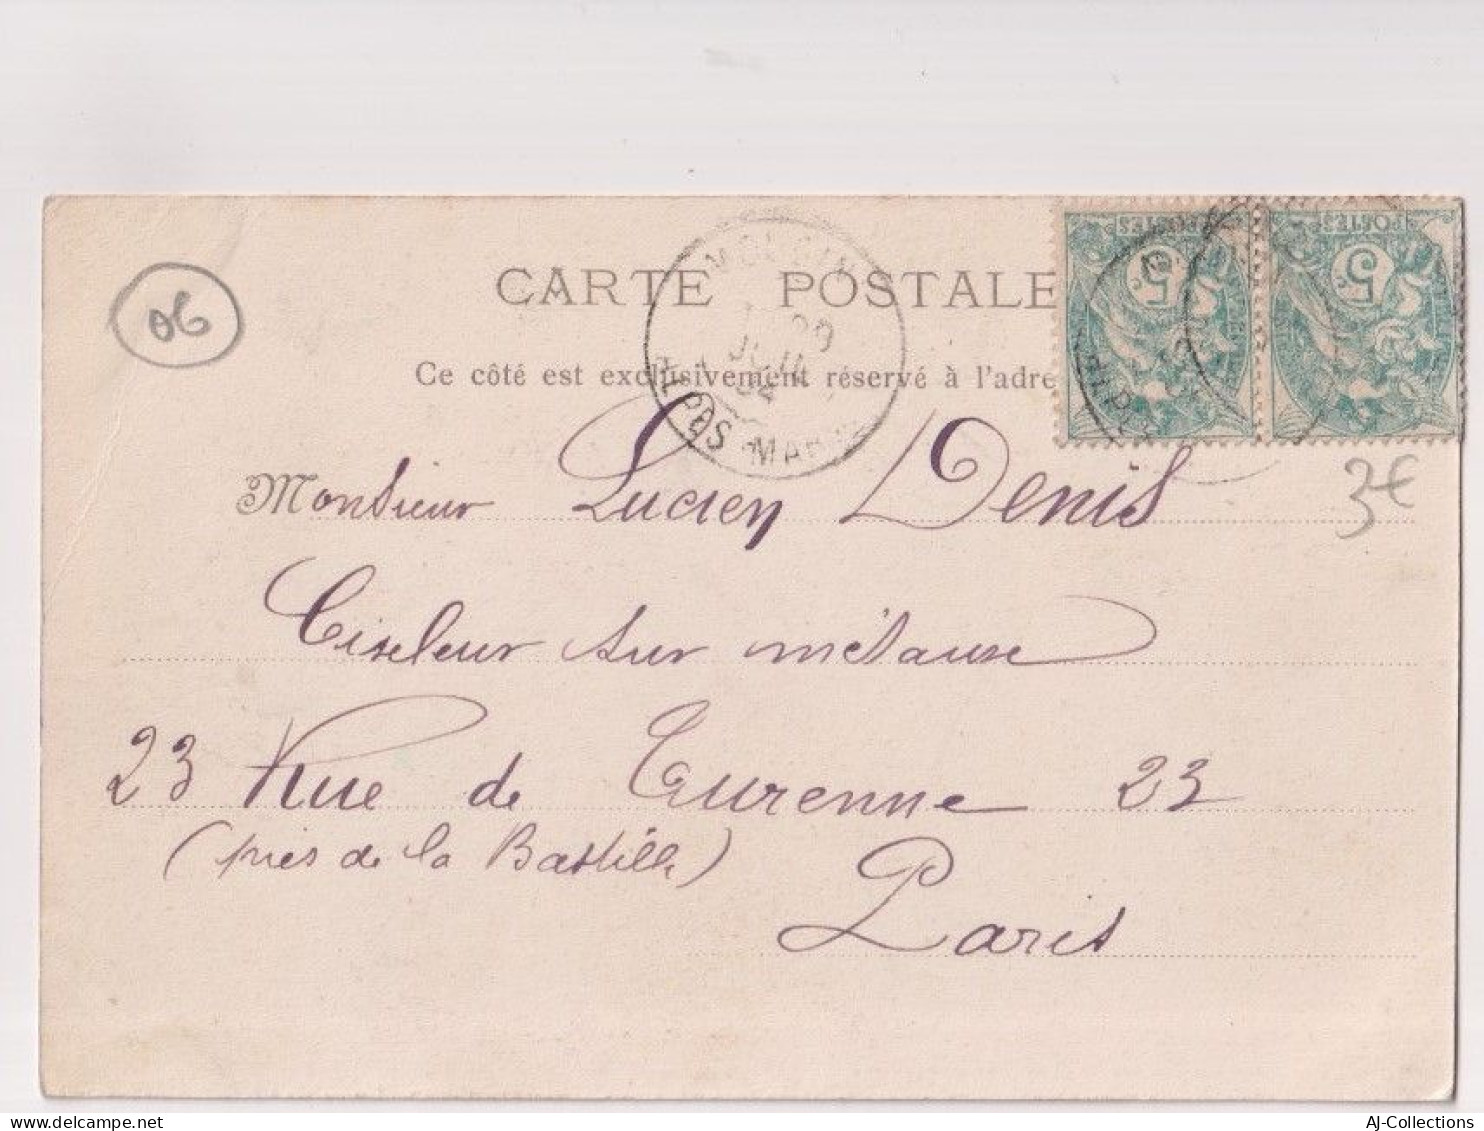 CARTE POSTALE
Ce côté est exclusivement réservé à l'adre
06
POSTES 5
POSTES 5
ALPES MAR
3€
Monsieur Lucien Denis
Ciseleur sur métaux
23 Rue de Turenne 23
(près de la Bastille)
Paris
AJ-Collections